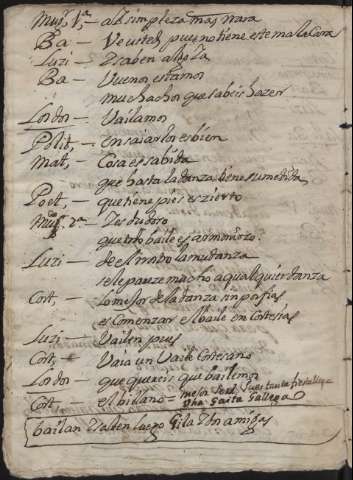 Mus, 1ª, - a la simpleza mas rrara
Ba - Ve usted, pues no tiene este mala Cara
Luzi - I saben al
Ba - Vuenos estamos
muchachos que sabeis hazer
Cordor - Vailamos
Polit, - ensaiarlos es bien
Mat, - Cosa es sabida
que hasta la danza tiene su medida
Poet, - que tiene pies es zierto
Mus, 2ª - I es dudoso
que todo baile es armonioso.
Luzi - de el rrobo la mudanza
se le pareze mucho a qualquier danza
Cort, - lo mejor de la danza sin porfias
es Comenzar el baile en Cortesias
Luzi - Vailen pues
Cort, - Vaia un Vaile Cortesano
Cordor - que quereis que bailemos
Cort - el billano =
Una Gaita Gallega
bailan I salen luego Gila I dos amigas